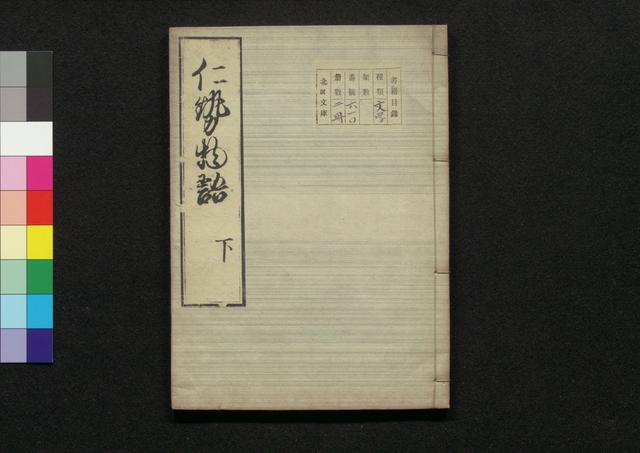 書籍目録
種類 文学
架数
番號 六一〇
冊数 二冊
北田文庫
仁勢物語
下